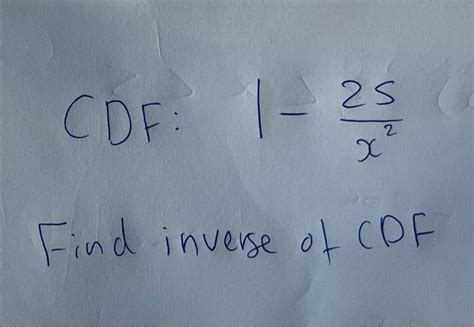 CDF: 1 - 25/x²
Find inverse of CDF